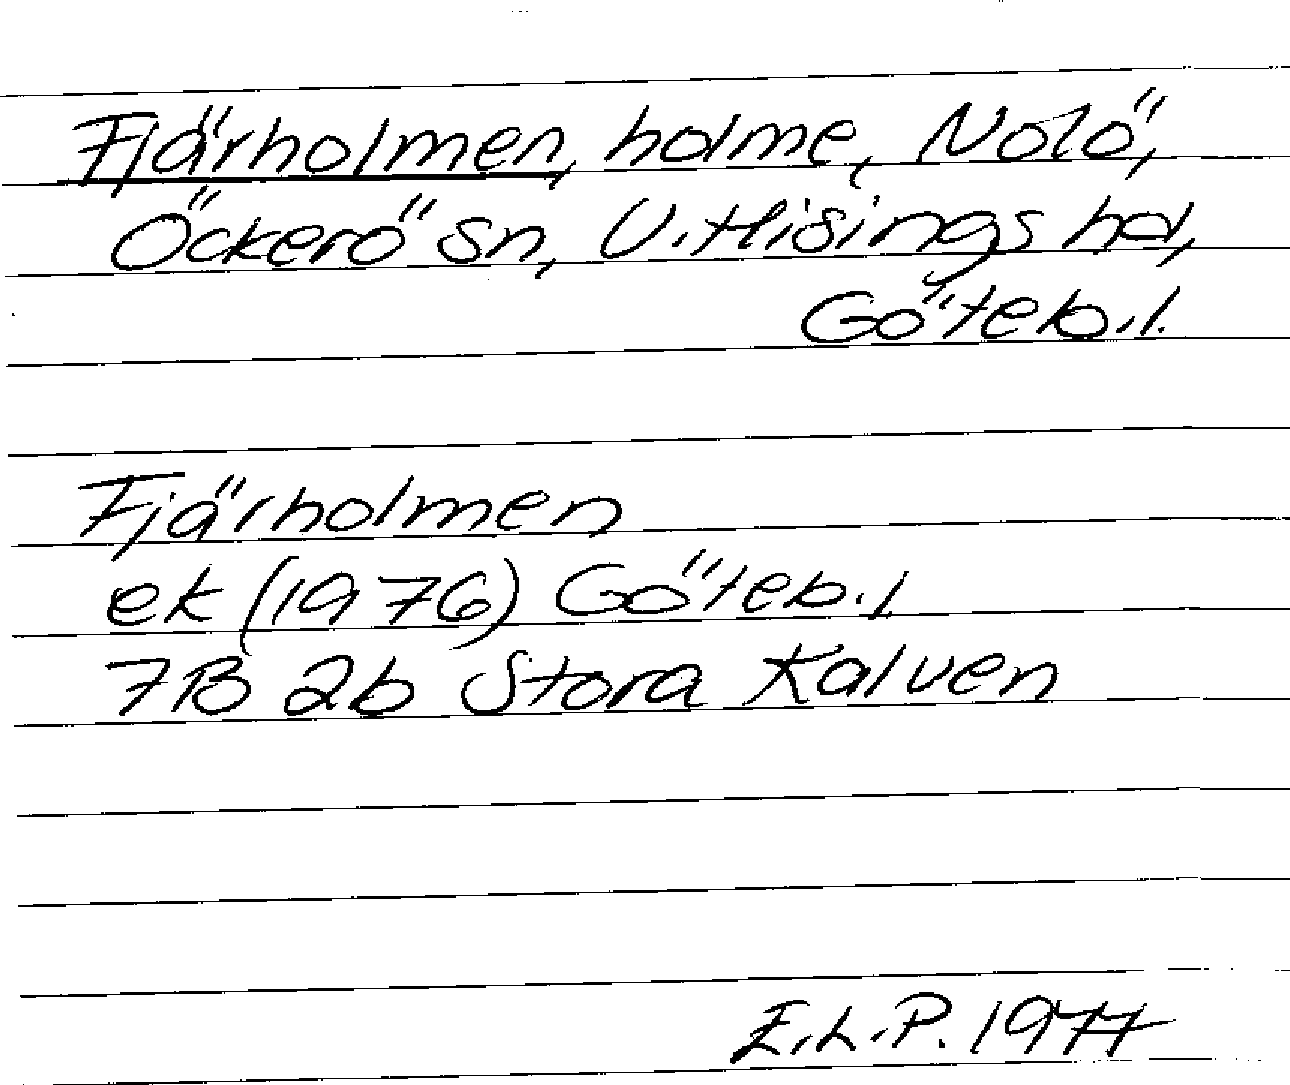 Fjärholmen, holme, Nolö,
Öckerö sn, V. Hisings hd,
Göteb. l.
Fjärholmen
ek (1976) Göteb. l.
7B 2b Stora Kalven
E.L.P. 1977